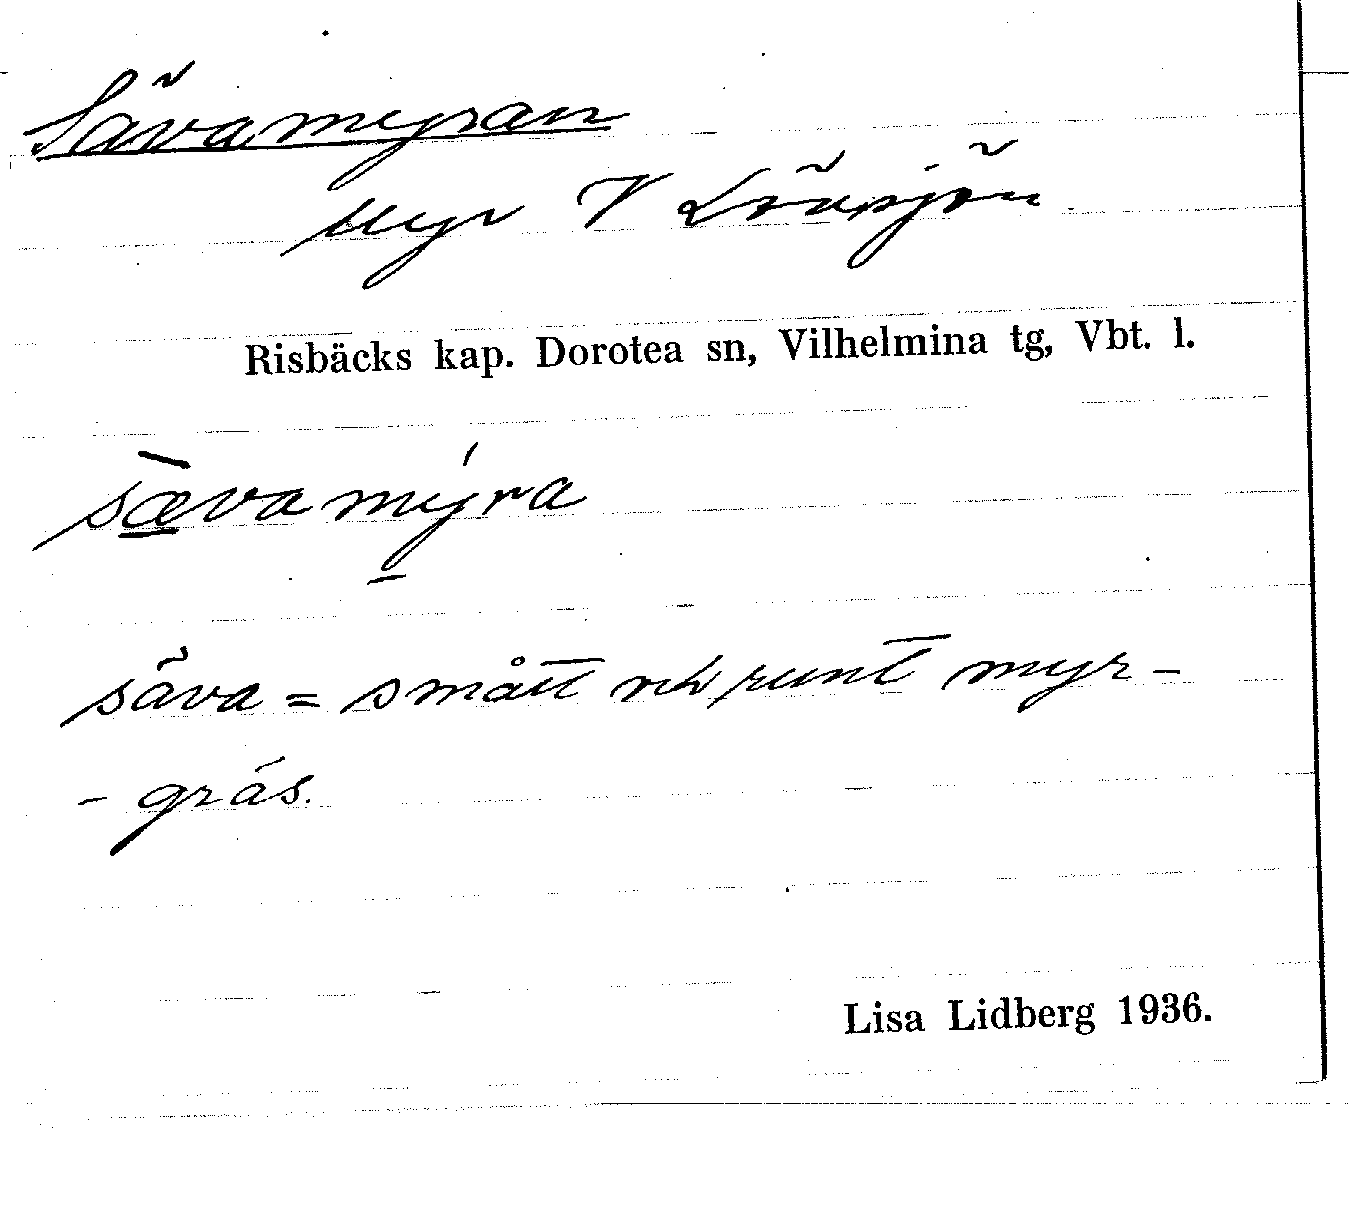 Sävamyran
Myr V Lövsjön
Risbäcks kap. Dorotea sn, Vilhelmina tg, Vbt. l.
sæ̀vamýra
säva = smått och runt myr-
- gräs.
Lisa Lidberg 1936.